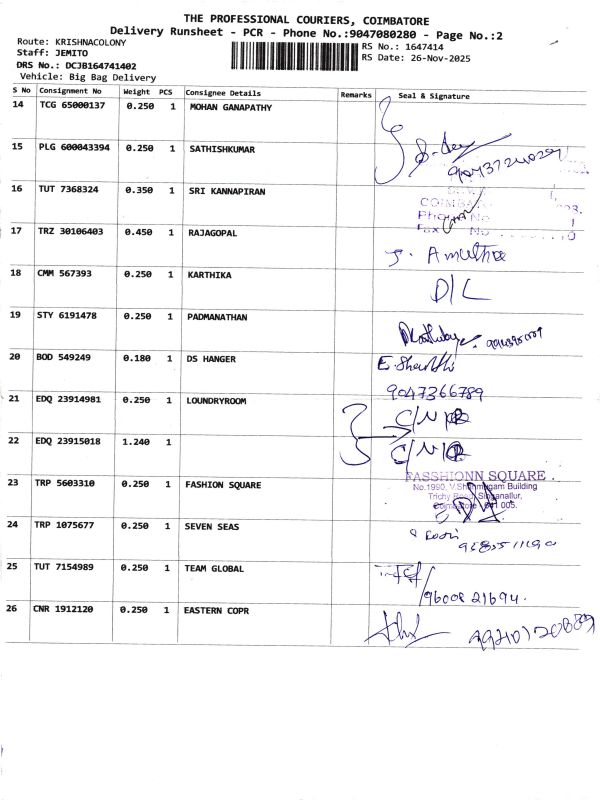 THE PROFESSIONAL COURIERS, COIMBATORE
Delivery Runsheet - PCR - Phone No.:9047080280 - Page No.:2
Route: KRISHNACOLONY
Staff: JEMITO
DRS No.: DCJB164741402
Vehicle: Big Bag Delivery
RS No.: 1647414
RS Date: 26-Nov-2025
S No Consignment No Weight PCS Consignee Details Remarks Seal & Signature
14 TCG 65000137 0.250 1 MOHAN GANAPATHY
15 PLG 600043394 0.250 1 SATHISHKUMAR
16 TUT 7368324 0.350 1 SRI KANNAPIRAN
17 TRZ 30106403 0.450 1 RAJAGOPAL
18 CMM 567393 0.250 1 KARTHIKA D/L
19 STY 6191478 0.250 1 PADMANATHAN
20 BOD 549249 0.180 1 DS HANGER
9047366789
21 EDQ 23914981 0.250 1 LOUNDRYROOM
22 EDQ 23915018 1.240 1
23 TRP 5603310 0.250 1 FASHION SQUARE
FASSHIONN SQUARE
24 TRP 1075677 0.250 1 SEVEN SEAS
25 TUT 7154989 0.250 1 TEAM GLOBAL
26 CNR 1912120 0.250 1 EASTERN COPR